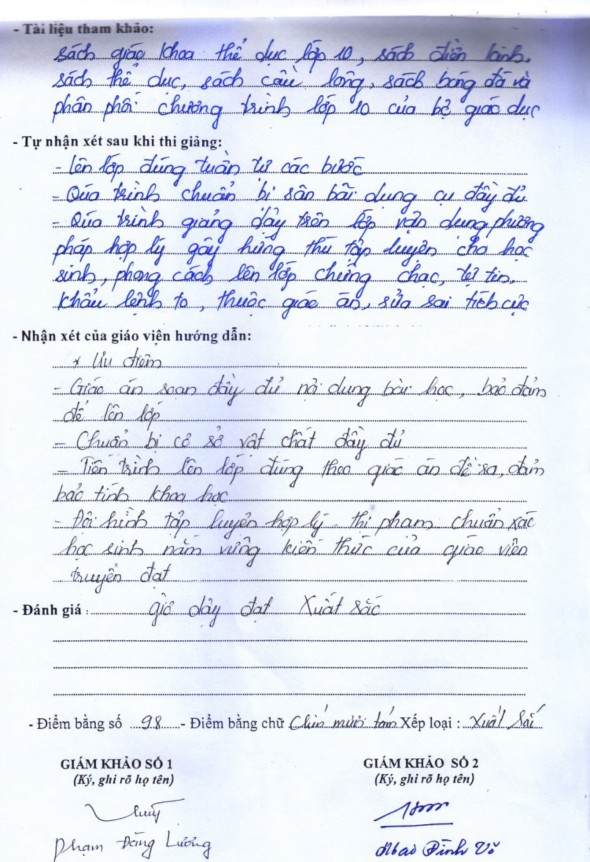 - Tài liệu tham khảo:
sách giáo khoa thể dục lớp 10, sách điền kinh,
sách thể dục, sách cầu lông, sách bóng đá và
phân phối chương trình lớp 10 của bộ giáo dục
- Tự nhận xét sau khi thi giảng:
- lên lớp đúng tuần tự các bước
- Qúa trình chuẩn bị sân bãi dụng cụ đầy đủ
- Qúa trình giảng dạy trên lớp vận dụng phương
pháp hợp lý gây hứng thú tập luyện cho học
sinh, phong cách lên lớp chững chạc, tự tin,
khẩu lệnh to, thuộc giáo án, sửa sai tích cực
- Nhận xét của giáo viện hướng dẫn:
* Ưu điểm
- Giáo án soạn đầy đủ nội dung bài học, bảo đảm
để lên lớp
- Chuẩn bị cơ sở vật chất đầy đủ
- Tiến trình lên lớp đúng theo giáo án đề ra, đảm
bảo tính khoa học
- Đội hình tập luyện hợp lý, thị phạm chuẩn xác
học sinh nắm vững kiến thức của giáo viên
truyền đạt
- Đánh giá : giờ dạy đạt Xuất sắc
- Điểm bằng số 9.8 - Điểm bằng chữ Chín mười tám Xếp loại : Xuất Sắc
GIÁM KHẢO SỐ 1 GIÁM KHẢO SỐ 2
(Ký, ghi rõ họ tên) (Ký, ghi rõ họ tên)
Phạm Đăng Lương Đình